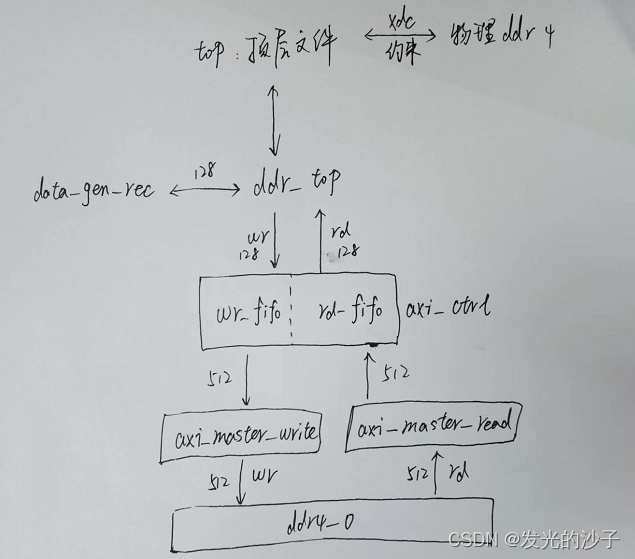 xdc
top：顶层文件
物理ddr4
约束
128
data_gen_rec
ddr_top
wr
128
rd
128
wr_fifo
rd-fifo
axi_ctrl
512
512
axi_master_write
axi-master-read
512
wr
512
rd
ddr4_0
CSDN @发光的沙子